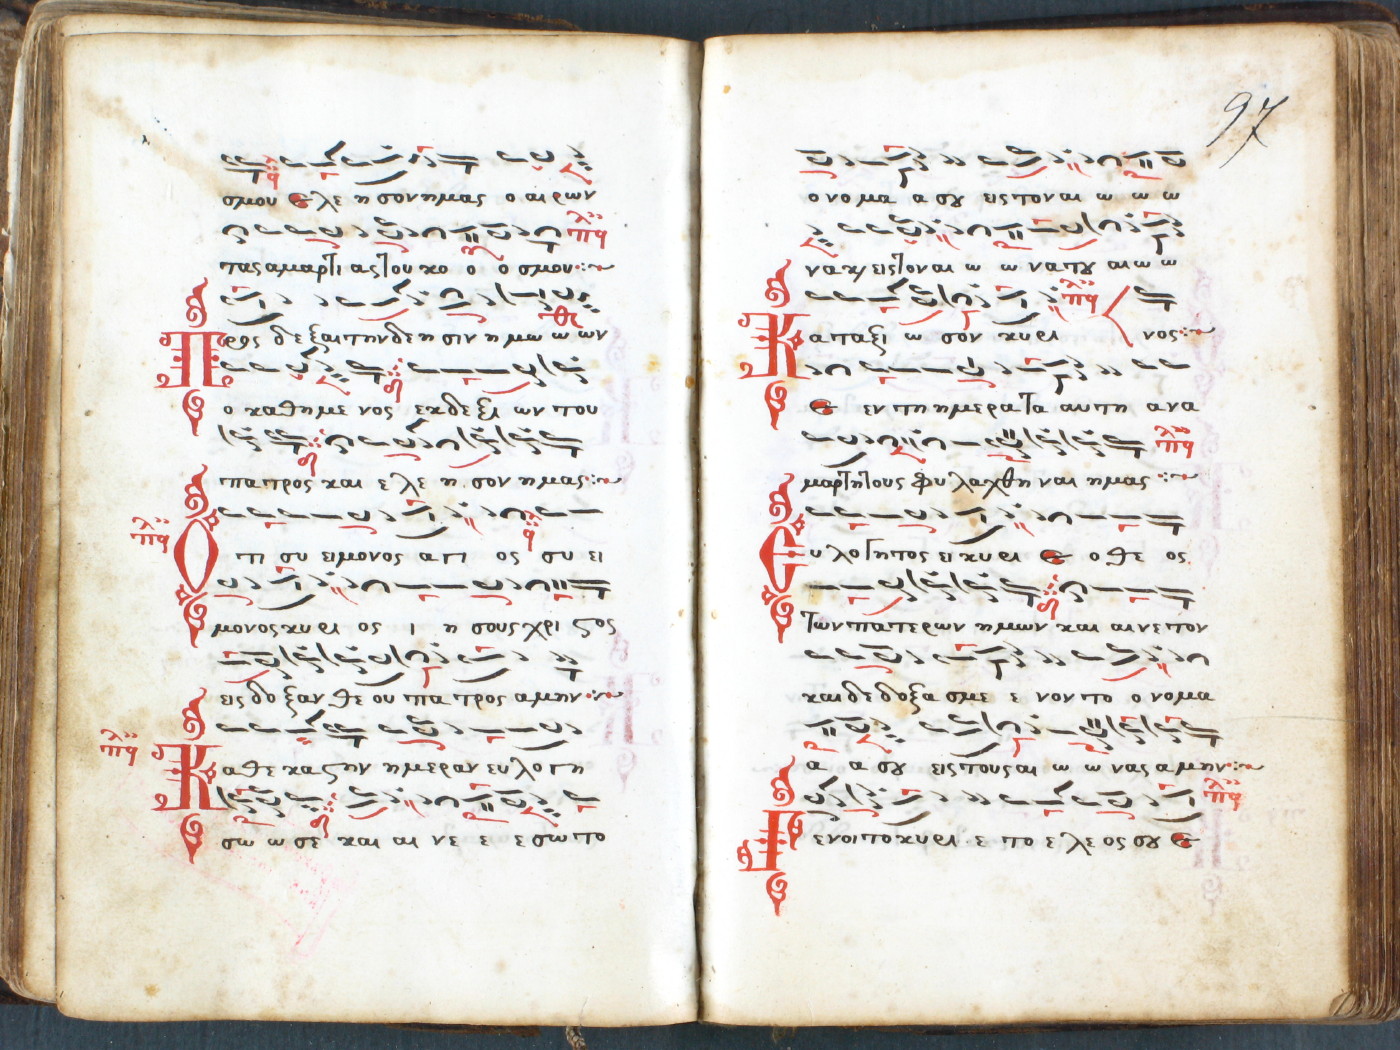 σμου ε λε η σον ημας ο αι ρων
τας αμαρτι ας του κο ο ο σμου
Προς δε ξαι την δε η σιν η μω ω ων
ο καθημε νος εκ δε ξι ων του
πα τρος και ε λε η σον η μας
Ο τι συ ει μονος α γι ος συ ει
μονος κυρι ος ι η σους χρι ϛος
εις δο ξαν θε ου πα τρος αμην
Κα θε καϛην ημεραν ευ λο γη
σω ω σε και αι νε ε ε σω το
97
ο νο μα α σȣ εις τον αι ω ω ω
να κ̀ εις τον αι ω ω να τȣ αι ω ω
Κα ταξι ω σον κυρι νος
ε εν τη ημερα τα αυ τη ανα
μαρτητους φυ λαχθη ναι ημας
Ευ λο γητος ει κυρι ε ο θε ος
των πατερων ημων και αι νε τον
και δε δοξα σμε ε νον το ο νομα
α α σȣ εις τους αι ω ω νας αμην
Γενοι το κυρι ε το ε λε ος σȣ ε